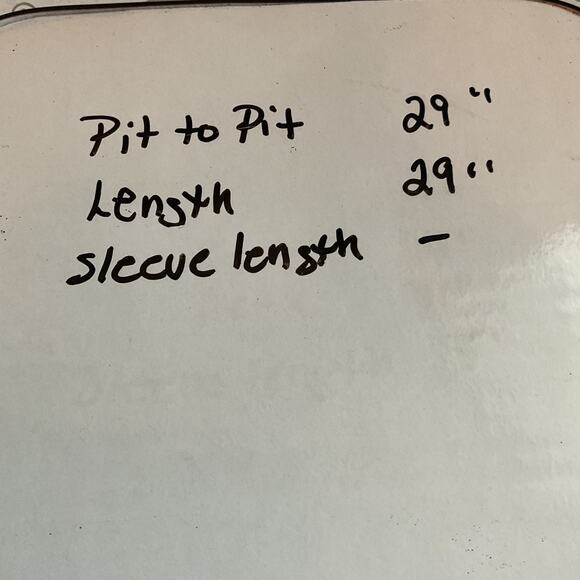 Pit to Pit 29"
Length 29"
Sleeve length -